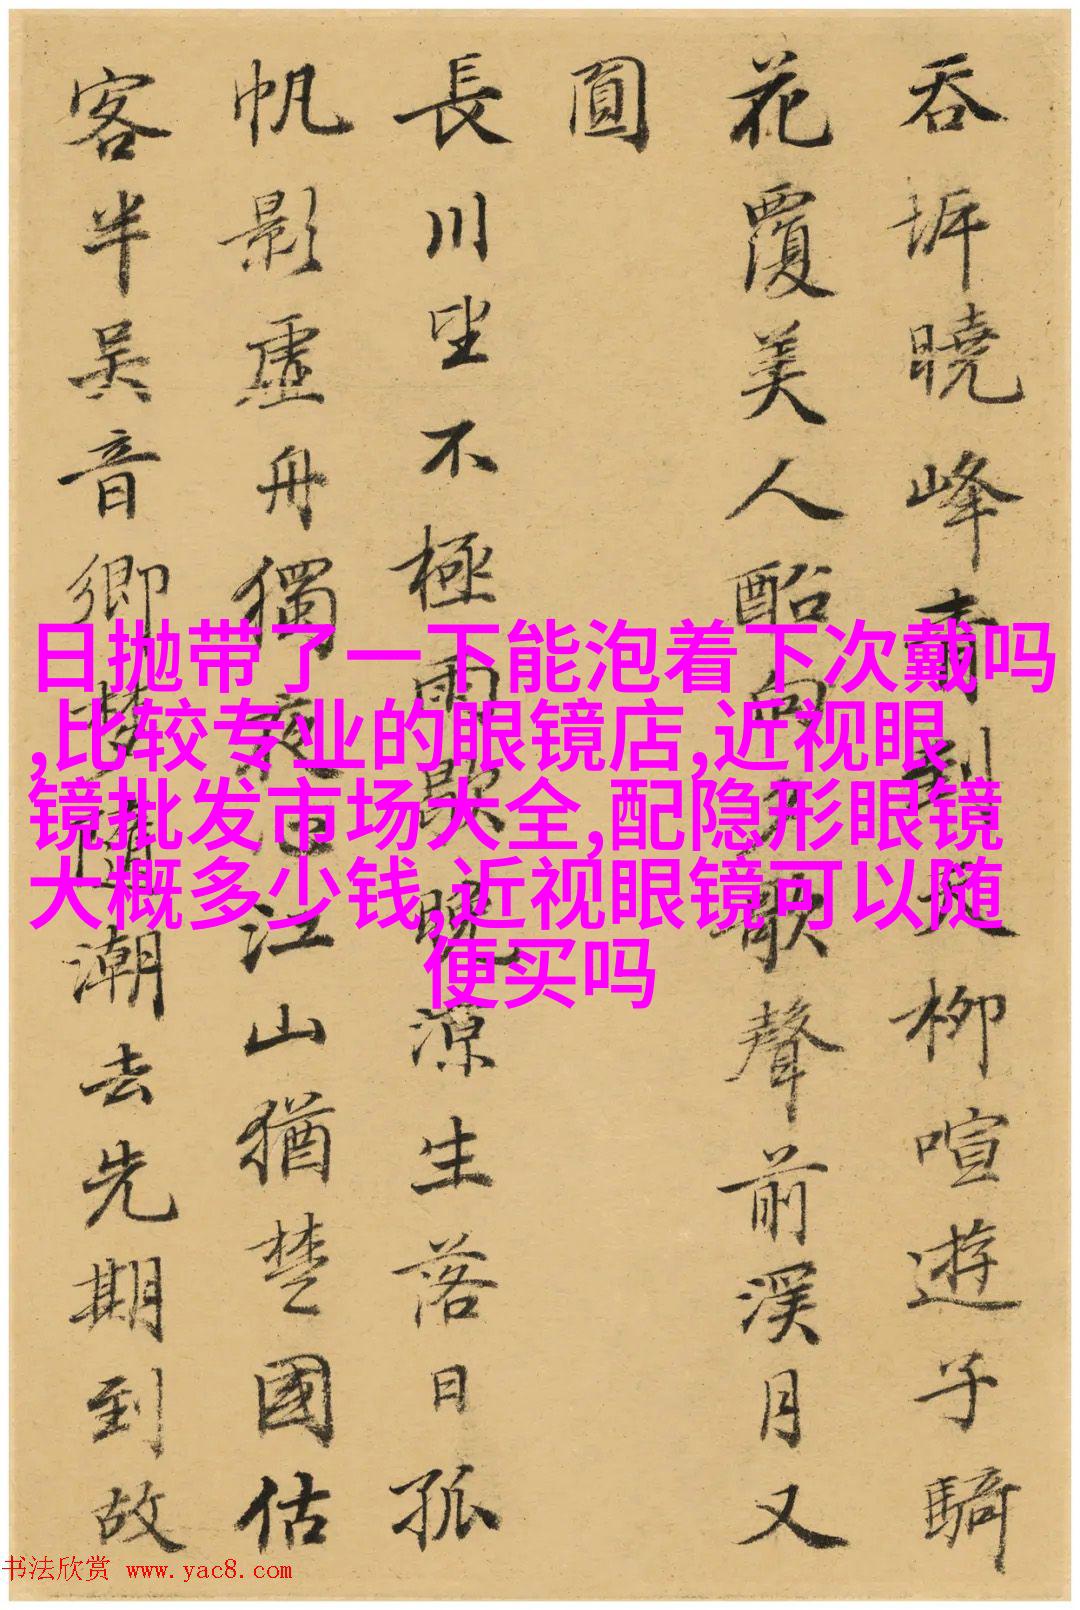 吞坼曉峰青刺天柳喧遊子騎
花覆美人酩向夕歌聲前溪月又
圓
長川坐不極雨歇晚涼生落日孤
帆影虛舟獨夜心江山猶楚國估
客半吳音鄉夢隨潮去先期到故
日抛带了一下能泡着下次戴吗
,比较专业的眼镜店,近视眼
镜批发市场大全,配隐形眼镜
大概多少钱,近视眼镜可以随
便买吗
书法欣赏 www.yac8.com